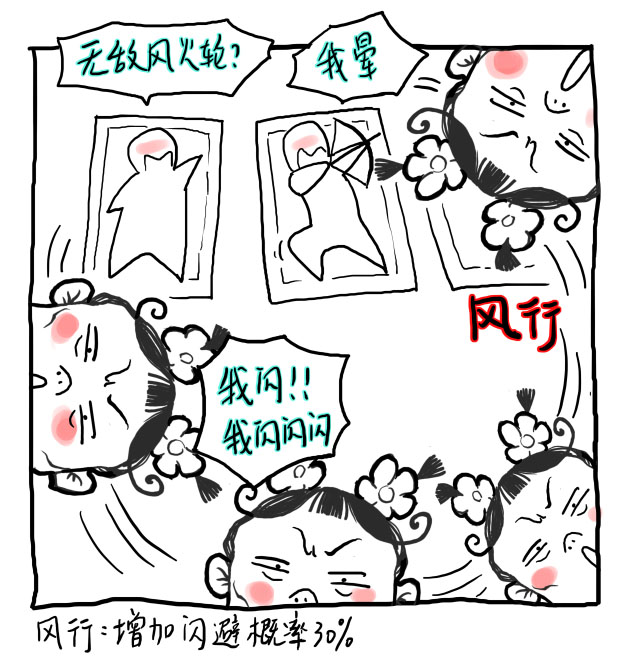 无敌风火轮?
我晕
风行
我闪!!
我闪闪闪
风行:增加闪避概率30%